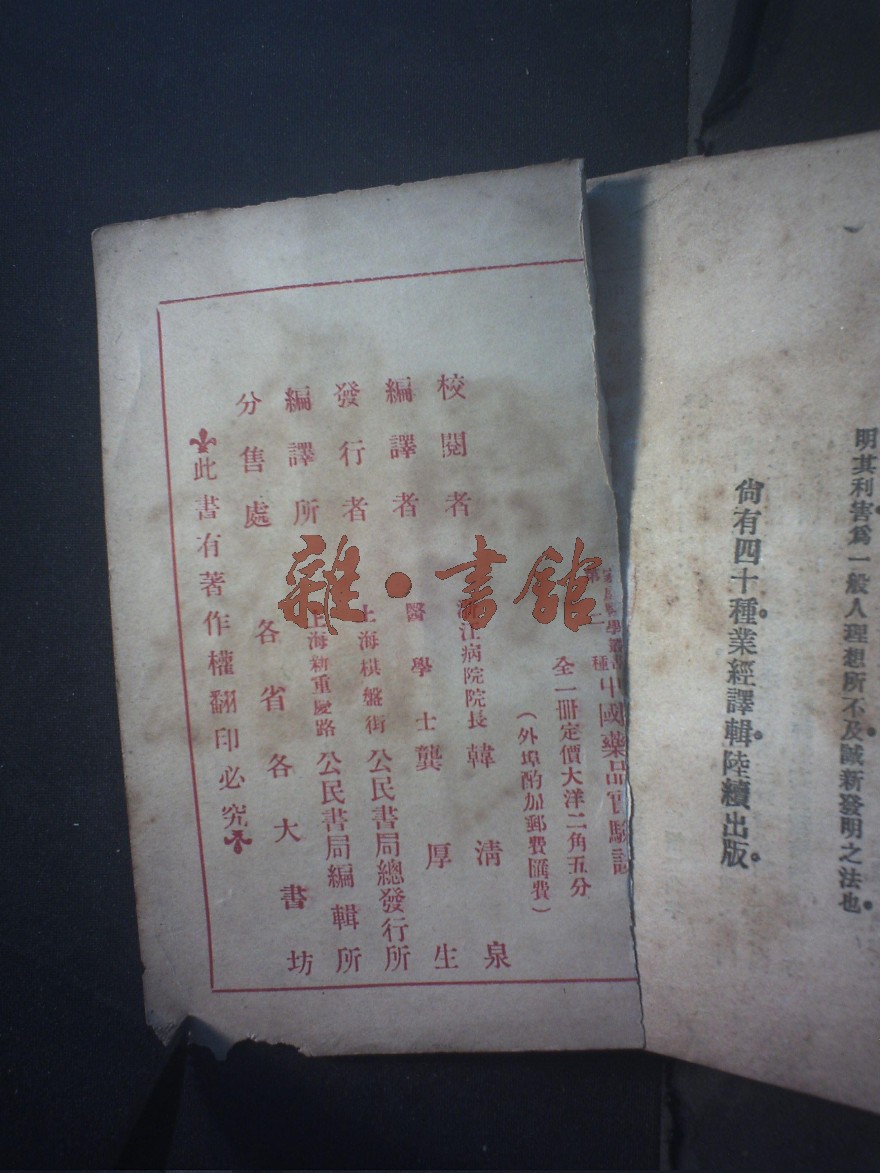 明其利害爲一般人理想所不及誠新發明之法也
尙有四十種業經譯輯陸續出版
種 中國藥品實驗談
全一冊定價大洋二角五分
（外埠酌加郵費匯費）
校閱者 江病院院長 韓清泉
編譯者 醫學士 龔厚生
發行者 上海棋盤街 公民書局總發行所
編譯所 上海新重慶路 公民書局編輯所
分售處 各省各大書坊
此書有著作權翻印必究
雜·書館